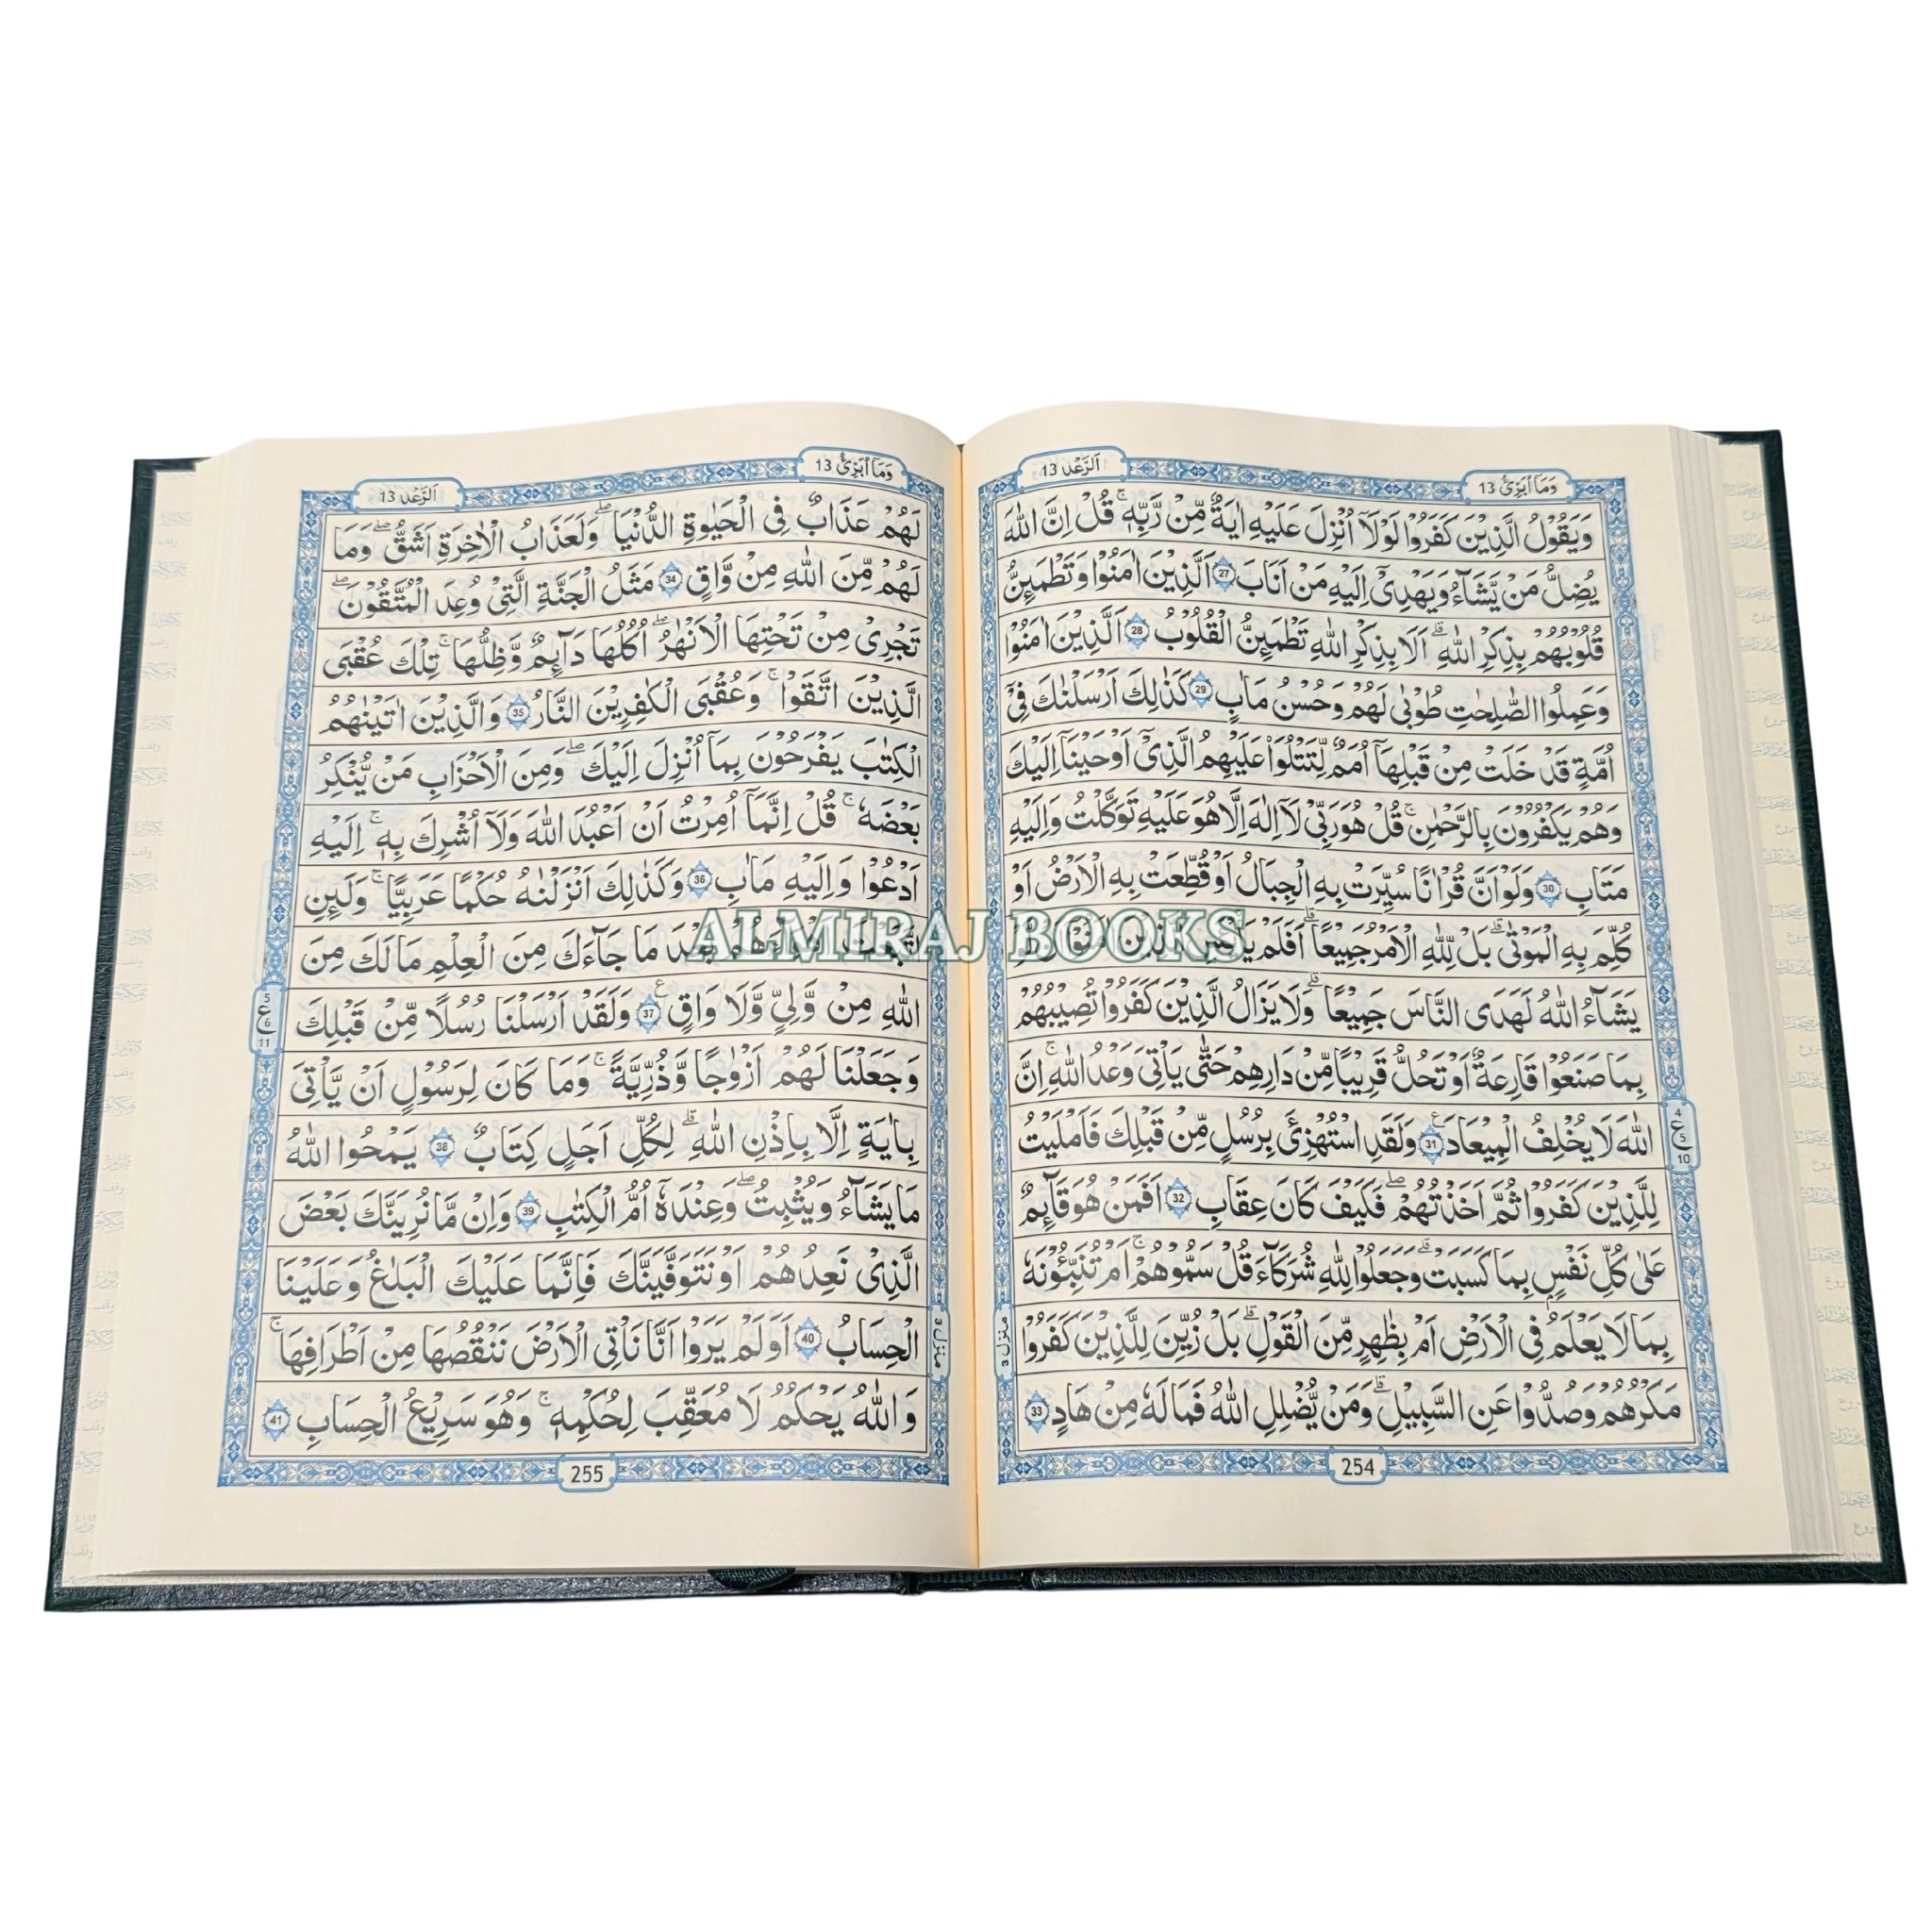 اَلرَّعْد 13
وَمَاۤ اُبَرِّئُ 13
وَيَقُوْلُ الَّذِيْنَ كَفَرُوْا لَوْلَاۤ اُنْزِلَ عَلَيْهِ اٰيَةٌ مِّنْ رَّبِّهٖ ؕ قُلْ اِنَّ اللّٰهَ
يُضِلُّ مَنْ يَّشَآءُ وَيَهْدِىْۤ اِلَيْهِ مَنْ اَنَابَ 27 اَلَّذِيْنَ اٰمَنُوْا وَتَطْمَئِنُّ
قُلُوْبُهُمْ بِذِكْرِ اللّٰهِ ؕ اَلَا بِذِكْرِ اللّٰهِ تَطْمَئِنُّ الْقُلُوْبُ 28 اَلَّذِيْنَ اٰمَنُوْا
وَعَمِلُوا الصّٰلِحٰتِ طُوْبٰى لَهُمْ وَحُسْنُ مَاٰبٍ 29 كَذٰلِكَ اَرْسَلْنٰكَ فِىْۤ
اُمَّةٍ قَدْ خَلَتْ مِنْ قَبْلِهَاۤ اُمَمٌ لِّتَتْلُوَا۟ عَلَيْهِمُ الَّذِىْۤ اَوْحَيْنَاۤ اِلَيْكَ
وَهُمْ يَكْفُرُوْنَ بِالرَّحْمٰنِ ۚ قُلْ هُوَ رَبِّىْ لَاۤ اِلٰهَ اِلَّا هُوَ عَلَيْهِ تَوَكَّلْتُ وَاِلَيْهِ
مَتَابِ 30 وَلَوْ اَنَّ قُرْاٰنًا سُيِّرَتْ بِهِ الْجِبَالُ اَوْ قُطِّعَتْ بِهِ الْاَرْضُ اَوْ
كُلِّمَ بِهِ الْمَوْتٰى ۗ بَلْ لِّلّٰهِ الْاَمْرُ جَمِيْعًا ۗ اَفَلَمْ
يَشَآءُ اللّٰهُ لَهَدَى النَّاسَ جَمِيْعًا ۗ وَلَا يَزَالُ الَّذِيْنَ كَفَرُوْا تُصِيْبُهُمْ
بِمَا صَنَعُوْا قَارِعَةٌ اَوْ تَحُلُّ قَرِيْبًا مِّنْ دَارِهِمْ حَتّٰى يَاْتِىَ وَعْدُ اللّٰهِ ۚ اِنَّ
اللّٰهَ لَا يُخْلِفُ الْمِيْعَادَ 31 وَلَقَدِ اسْتُهْزِئَ بِرُسُلٍ مِّنْ قَبْلِكَ فَاَمْلَيْتُ
لِلَّذِيْنَ كَفَرُوْا ثُمَّ اَخَذْتُهُمْ ۖ فَكَيْفَ كَانَ عِقَابِ 32 اَفَمَنْ هُوَ قَآئِمٌ
عَلٰى كُلِّ نَفْسٍۢ بِمَا كَسَبَتْ ۗ وَجَعَلُوْا لِلّٰهِ شُرَكَآءَ ؕ قُلْ سَمُّوْهُمْ ۚ اَمْ تُنَبِّئُوْنَهٗ
بِمَا لَا يَعْلَمُ فِى الْاَرْضِ اَمْ بِظَاهِرٍ مِّنَ الْقَوْلِ ۗ بَلْ زُيِّنَ لِلَّذِيْنَ كَفَرُوْا
مَكْرُهُمْ وَصُدُّوْا عَنِ السَّبِيْلِ ۗ وَمَنْ يُّضْلِلِ اللّٰهُ فَمَا لَهٗ مِنْ هَادٍ 33
4
ع
5
10
منزل 3
254
وَمَاۤ اُبَرِّئُ 13
اَلرَّعْد 13
لَهُمْ عَذَابٌ فِى الْحَيٰوةِ الدُّنْيَا ۖ وَلَعَذَابُ الْاٰخِرَةِ اَشَقُّ ۖ وَمَا
لَهُمْ مِّنَ اللّٰهِ مِنْ وَّاقٍ 34 مَثَلُ الْجَنَّةِ الَّتِىْ وُعِدَ الْمُتَّقُوْنَ ۖ
تَجْرِىْ مِنْ تَحْتِهَا الْاَنْهٰرُ ۖ اُكُلُهَا دَآئِمٌ وَّظِلُّهَا ۚ تِلْكَ عُقْبَى
الَّذِيْنَ اتَّقَوْا ۚ وَعُقْبَى الْكٰفِرِيْنَ النَّارُ 35 وَالَّذِيْنَ اٰتَيْنٰهُمُ
الْكِتٰبَ يَفْرَحُوْنَ بِمَاۤ اُنْزِلَ اِلَيْكَ ۖ وَمِنَ الْاَحْزَابِ مَنْ يُّنْكِرُ
بَعْضَهٗ ۚ قُلْ اِنَّمَاۤ اُمِرْتُ اَنْ اَعْبُدَ اللّٰهَ وَلَاۤ اُشْرِكَ بِهٖ ۚ اِلَيْهِ
اَدْعُوْا وَاِلَيْهِ مَاٰبِ 36 وَكَذٰلِكَ اَنْزَلْنٰهُ حُكْمًا عَرَبِيًّا ۚ وَلَئِنِ
مَا جَآءَكَ مِنَ الْعِلْمِ مَا لَكَ مِنَ
اللّٰهِ مِنْ وَّلِىٍّ وَّلَا وَاقٍ 37 وَلَقَدْ اَرْسَلْنَا رُسُلًا مِّنْ قَبْلِكَ
وَجَعَلْنَا لَهُمْ اَزْوٰجًا وَّذُرِّيَّةً ۚ وَمَا كَانَ لِرَسُوْلٍ اَنْ يَّاْتِىَ
بِاٰيَةٍ اِلَّا بِاِذْنِ اللّٰهِ ۗ لِكُلِّ اَجَلٍ كِتَابٌ 38 يَمْحُوا اللّٰهُ
مَا يَشَآءُ وَيُثْبِتُ ۖ وَعِنْدَهٗۤ اُمُّ الْكِتٰبِ 39 وَاِنْ مَّا نُرِيَنَّكَ بَعْضَ
الَّذِىْ نَعِدُهُمْ اَوْ نَتَوَفَّيَنَّكَ فَاِنَّمَا عَلَيْكَ الْبَلٰغُ وَعَلَيْنَا
الْحِسَابُ 40 اَوَلَمْ يَرَوْا اَنَّا نَاْتِى الْاَرْضَ نَنْقُصُهَا مِنْ اَطْرَافِهَا ۚ
وَاللّٰهُ يَحْكُمُ لَا مُعَقِّبَ لِحُكْمِهٖ ۚ وَهُوَ سَرِيْعُ الْحِسَابِ 41
5
ع
6
11
منزل 3
255
ALMIRAJ BOOKS